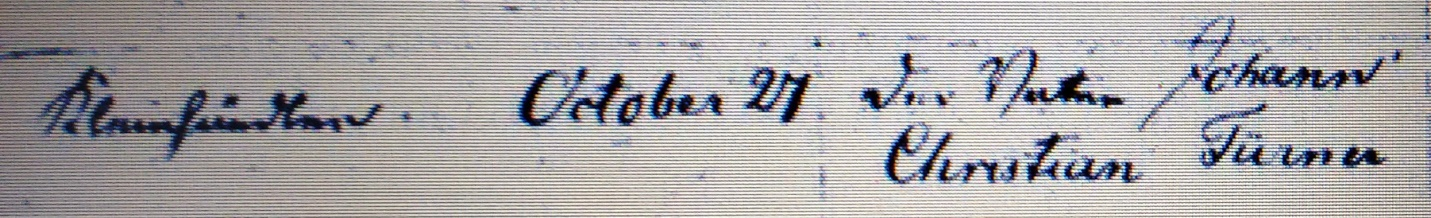 Kleinhändler. October 27 Der Vater Johann
Christian Türner